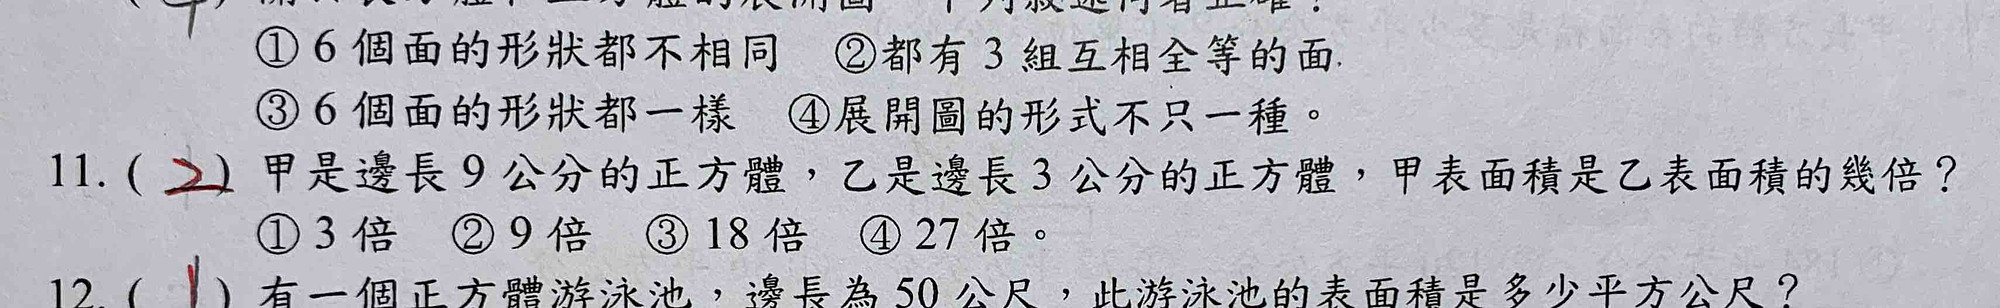 ① 6 個面的形狀都不相同 ②都有 3 組互相全等的面.
③ 6 個面的形狀都一樣 ④展開圖的形式不只一種。
11. ( 2 ) 甲是邊長 9 公分的正方體,乙是邊長 3 公分的正方體,甲表面積是乙表面積的幾倍?
① 3 倍 ② 9 倍 ③ 18 倍 ④ 27 倍。
12. ( 1 ) 有一個正方體游泳池,邊長為 50 公尺,此游泳池的表面積是多少平方公尺?